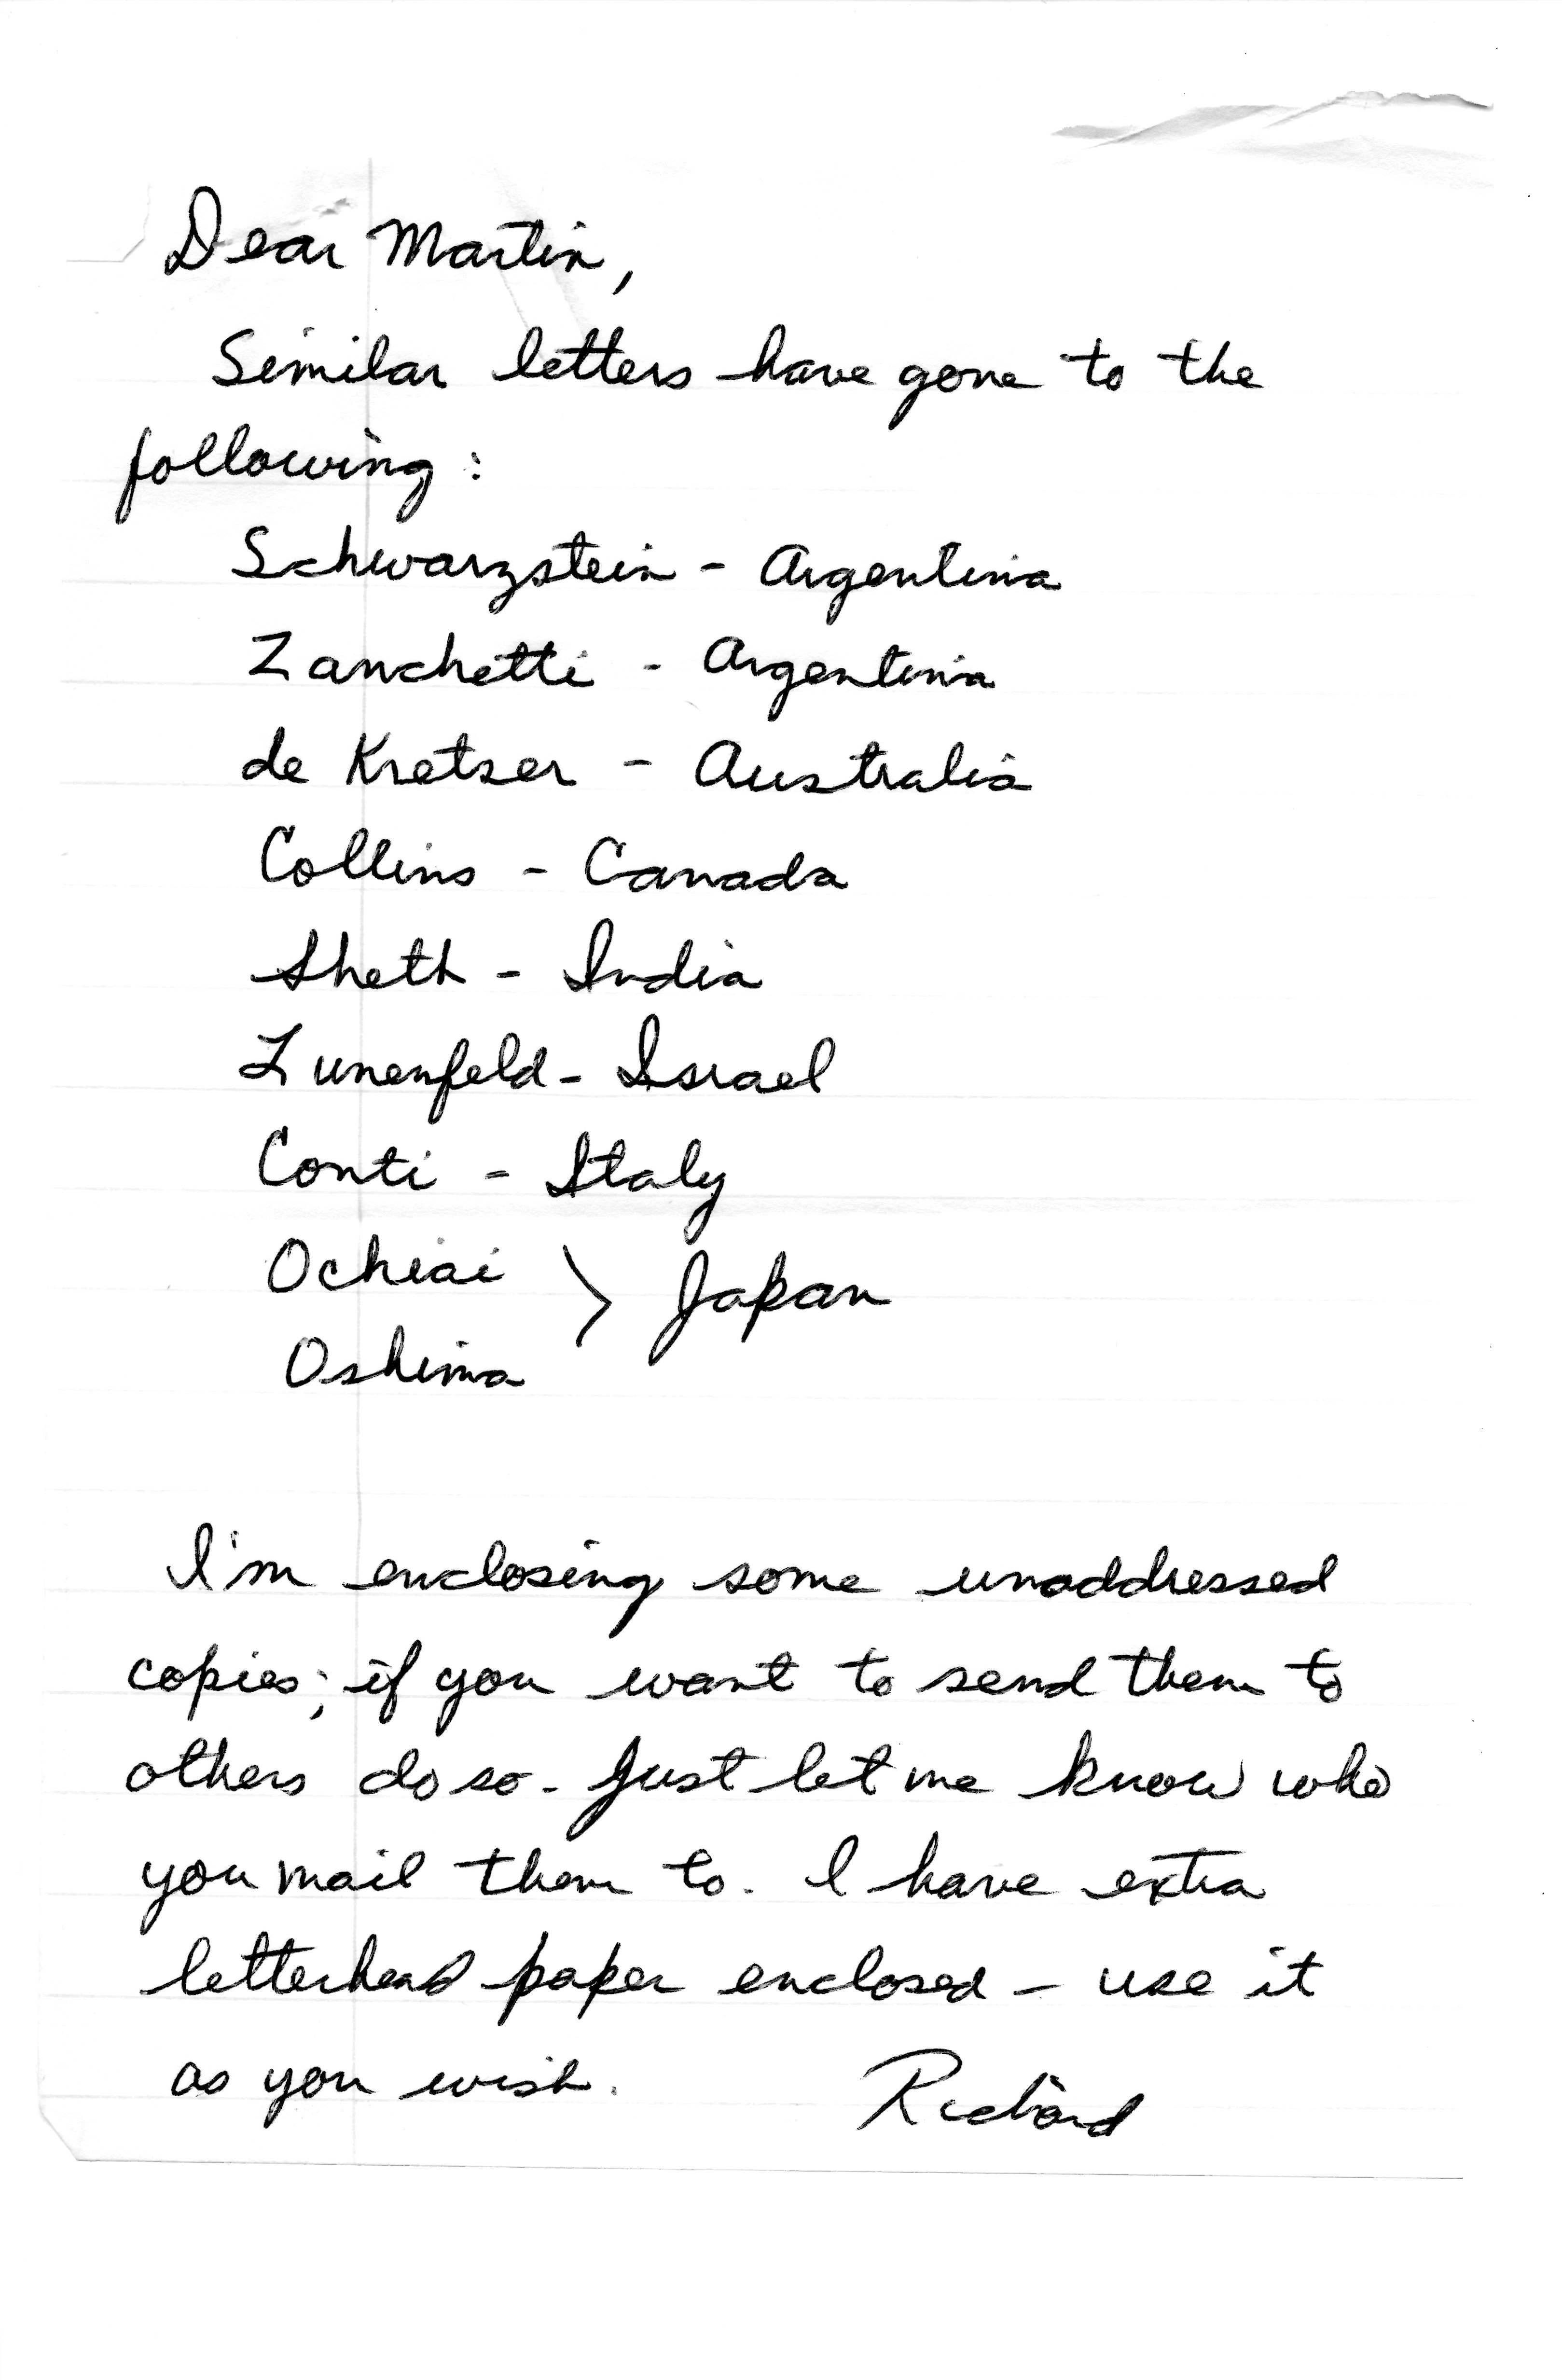 Dear Martin,
Similar letters have gone to the
following:
Schwarzstein - Argentina
Zanchetti - Argentina
de Kretser - Australia
Collins - Canada
Sheth - India
Lunenfeld - Israel
Conti - Italy
Ochiai
> Japan
Oshima
I'm enclosing some unaddressed
copies; if you want to send them to
others do so. Just let me know who
you mail them to. I have extra
letterhead paper enclosed - use it
as you wish.
Richard